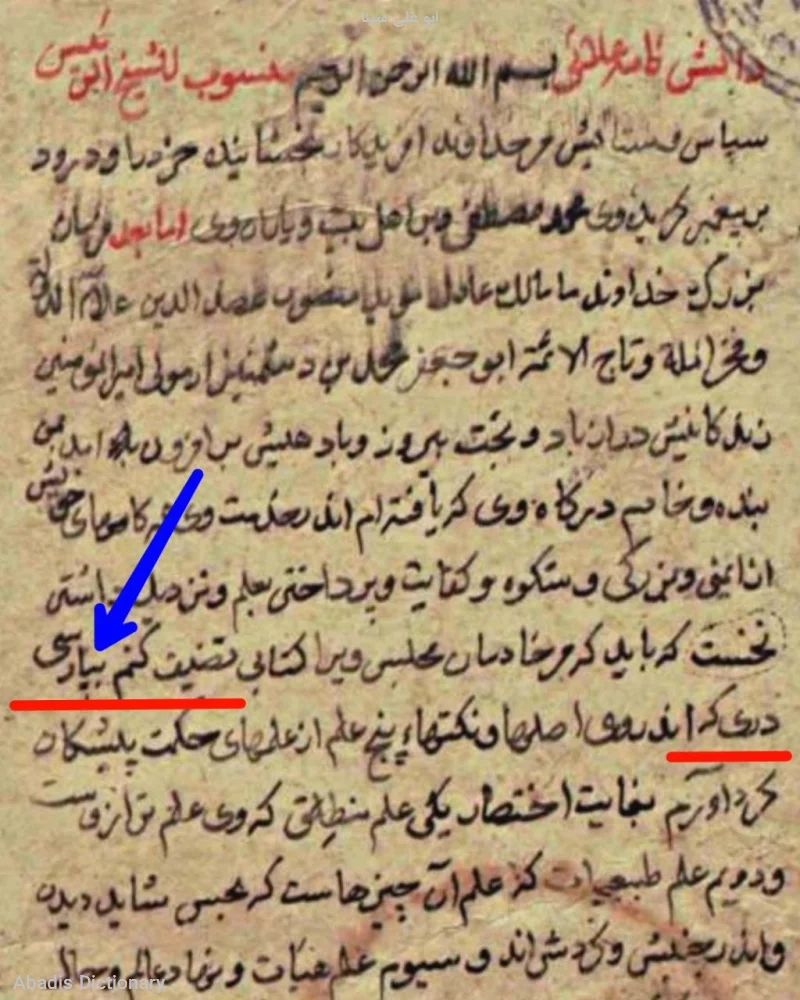 ابو علی سینا
دانش نامه علائی بسم الله الرحمن الرحیم منسوب للشیخ الرئیس
سپاس و ستایش مر خداوند آفریدگار بخشاینده خرد را و درود
بر پیغمبر گزیده وی محمد مصطفی و بر اهل بیت و یاران وی اما بعد فرمان
بزرگ خداوند ما مالک عادل مؤید منصور عضد الدین علاء الدولة
و فخر الملة و تاج الائمة ابو جعفر محمد بن دشمنزیار مولی امیر المؤمنین
زندگانیش دراز باد و بخت پیروز و پادشاهیش بر افزون باد آمد بمن
بنده و خادم درگاه وی که یافته ام اندر خدمت وی همه کامهای خویش
از ایمنی و بزرگی و شکوه و کفایت و پرداختن بعلم و نزدیک داشتن
نخست که باید که مر خادمان مجلس ویرا کتابی تصنیف کنم بپارسی
دری که اندر وی اصلها و نکتهاء پنج علم از علمهای حکمت پیشگان
گرد آورم بغایت اختصار یکی علم منطق که وی علم ترازوست
و دویم علم طبیعیات که علم آن چیزهاست که بحس شاید دید
و اندر جنبش و گردش اند و سیوم علم هیأت و نهاد عالم و حال
Abadis Dictionary